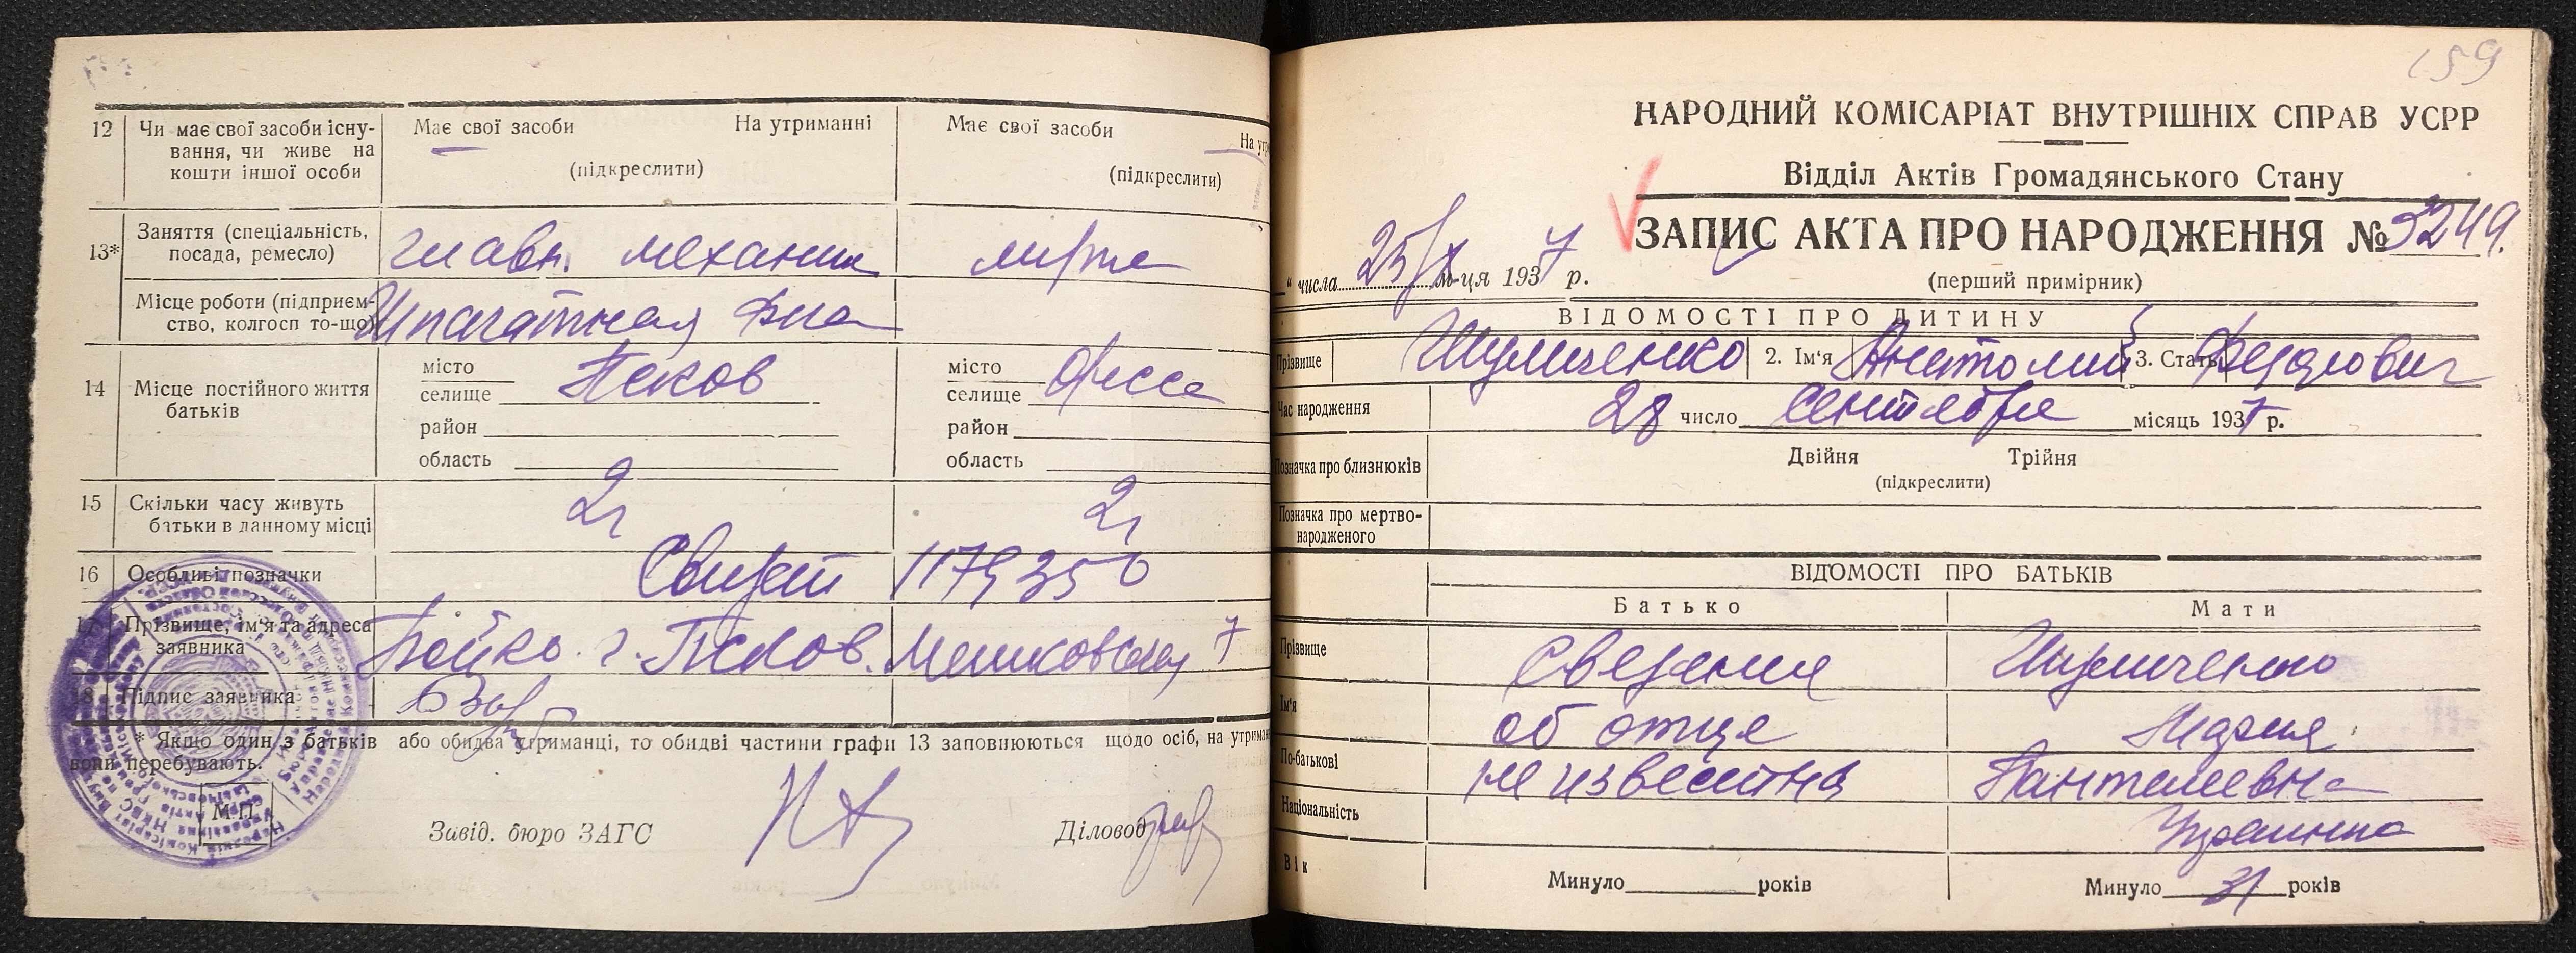 12 Чи має свої засоби існу-
вання, чи живе на
кошти іншої особи
Має свої засоби На утриманні
(підкреслити)
Має свої засоби На утр
(підкреслити)
13* Заняття (спеціальність,
посада, ремесло)
главн. механик
Місце роботи (підприєм-
ство, колгосп то-що)
Шпагатная ф-ка
14 Місце постійного життя
батьків
місто
селище Псков
район
область
місто
селище Одесса
район
область
15 Скільки часу живуть
батьки в данному місці
2 г 2 г
16 Особливі позначки
17 Прізвище, ім'я та адреса
заявника
Бойко. г. Псков. 7
18 Підпис заявника
* Якщо один з батьків або обидва утриманці, то обидві частини графи 13 заповнюються щодо осіб, на утриман
вони перебувають.
М.П.
Завід. бюро ЗАГС Діловод
159
НАРОДНИЙ КОМІСАРІАТ ВНУТРІШНІХ СПРАВ УСРР
Відділ Актів Громадянського Стану
ЗАПИС АКТА ПРО НАРОДЖЕННЯ № 3249.
" числа 25/X м-ця 1937 р.
(перший примірник)
ВІДОМОСТІ ПРО ДИТИНУ
Прізвище Шумиченко 2. Ім'я Анатолий 3. Стать
Час народження 28 число Сентября місяць 1937 р.
Позначка про близнюків Двійня Трійня
(підкреслити)
Позначка про мертво-
народженого
ВІДОМОСТІ ПРО БАТЬКІВ
Батько Мати
Прізвище Сведения Шумиченко
Ім'я об отце Мария
По-батькові не известна Пантелеевна
Національність Украинка
Вік
Минуло років Минуло 31 років